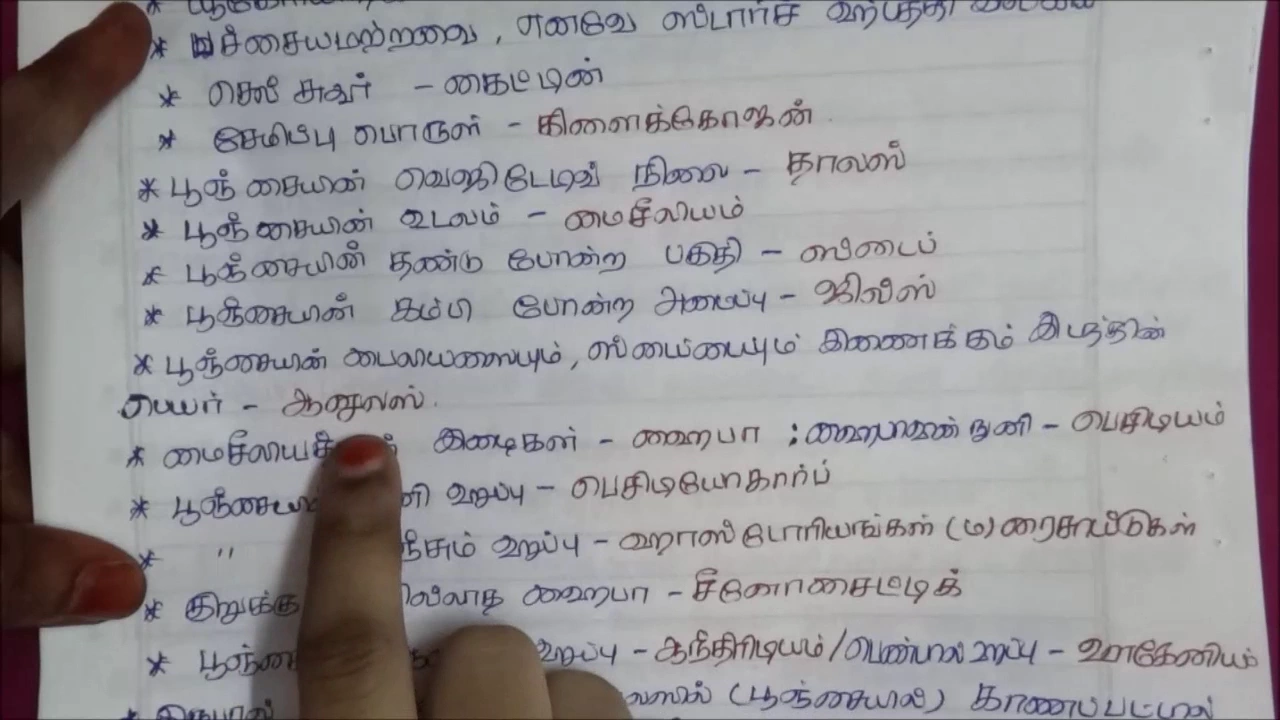 * பச்சையமற்றவை, எனவே ஸ்டார்ச் உற்பத்தி
* செல் சுவர் - கைட்டின்
* சேமிப்பு பொருள் - கிளைக்கோஜன்.
* பூஞ்சையின் வெஜிடேடிவ் நிலை - தாலஸ்
* பூஞ்சையின் உடலம் - மைசீலியம்
* பூஞ்சையின் தண்டு போன்ற பகுதி - ஸ்டைப்
* பூஞ்சையின் கம்பி போன்ற அமைப்பு - ஜில்ஸ்
* பூஞ்சையின் பைலியஸையும், ஸ்டைப்பையும் இணைக்கும் இடத்தின்
பெயர் - ஆனுலஸ்.
* இழைகள் - ஹைபா ; ஹைபாவின் நுனி - பெசிடியம்
* உறுப்பு - பெசிடியோகார்ப்
* " உறுப்பு - ஹாஸ்டோரியங்கள் (ம) ரைசாய்டுகள்
* குறுக்கு ஹைபா - சீனோசைட்டிக்
* உறுப்பு - ஆந்திரிடியம் / பெண்பால் உறுப்பு - ஊகோனியம்
* (பூஞ்சையில்) காணப்பட்டால்